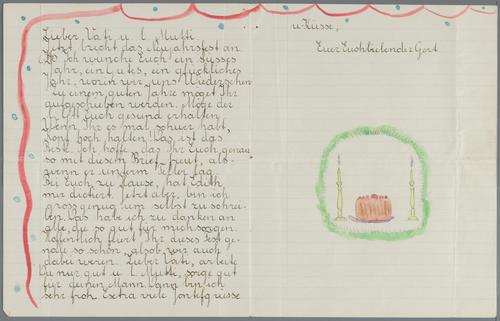 Lieber Vati, u. l. Mutti
Jetzt bricht das Neujahrsfest an
u. ich wünsche Euch ein süsses
Jahr, ein Gutes, ein glückliches
Jhr, worin wir uns Wiedersehen
Zu einem guten Jahre möget Ihr
aufgeschrieben werden. Möge der
l. Gtt Euch gesund erhalten
Wenn Ihr es mal schwer habt,
Kopf hoch halten! Das ist das
Beste. Ich hoffe das Ihr Euch genau
so mit diesem Brief freut, als
wenn er unterm Teller lag.
Bei Euch zu Hause, hat Edith
mir dictiert. Jetzt aber, bin ich
gross genug um selbst zu schrei-
ben. Das habe ich zu danken an
alle, die so gut für mich sorgen.
Hoffentlich feiert Ihr dieses Fest ge-
nau so schön, alsob wir auch
dabei wären. Lieber Vati, arbeite
Du nur gut u. l. Mutti, sorge gut
für deinen Mann. Dann bin ich
sehr froh. Extra viele Jontefgrüsse
u. Küsse,
Euer Euchliebender Gert